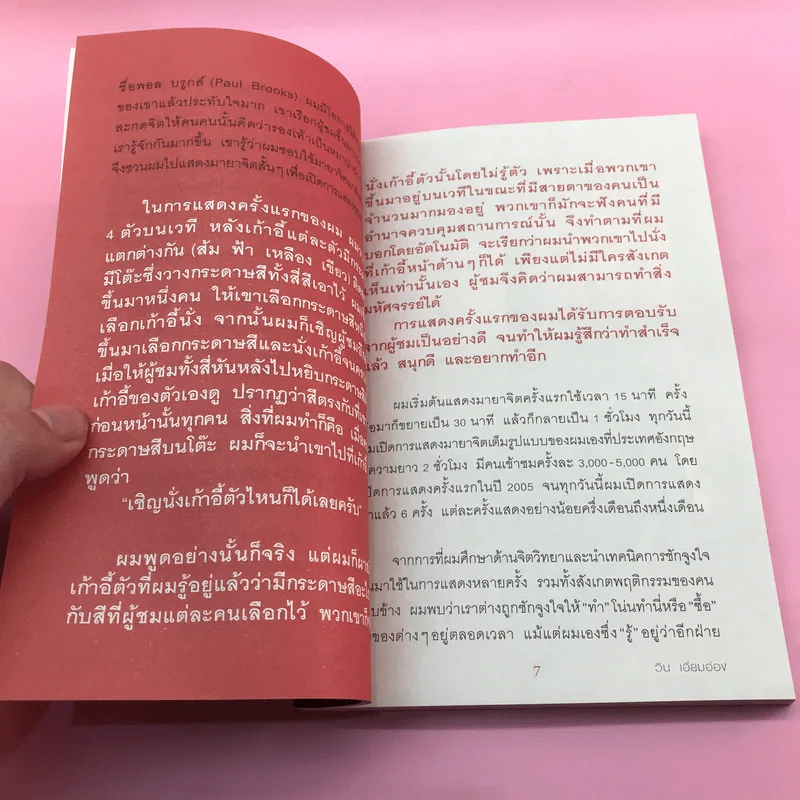 ชื่อพอล บรูกส์ (Paul Brooks) ผมมีโอกาสได้
ของเขาแล้วประทับใจมาก เขาเรียกผู้ชมขึ้นมา
สะกดจิตให้คนคนนั้นคิดว่ารองเท้าเป็นหมา
เรารู้จักกันมากขึ้น เขารู้ว่าผมชอบใช้มายาจิต
จึงชวนผมไปแสดงมายาจิตสั้นๆ เพื่อเปิดการแสดง
ในการแสดงครั้งแรกของผม
4 ตัวบนเวที หลังเก้าอี้แต่ละตัวมีกระ
แตกต่างกัน (ส้ม ฟ้า เหลือง เขียว)
มีโต๊ะซึ่งวางกระดาษสีทั้งสี่สีเอาไว้
ขึ้นมาหนึ่งคน ให้เขาเลือกกระดาษสี
เลือกเก้าอี้นั่ง จากนั้นผมก็เชิญผู้ชม
ขึ้นมาเลือกกระดาษสีและนั่งเก้าอี้จนคร
เมื่อให้ผู้ชมทั้งสี่หันหลังไปหยิบกระดาษ
เก้าอี้ของตัวเองดู ปรากฏว่าสีตรงกับที่
ก่อนหน้านั้นทุกคน สิ่งที่ผมทำก็คือ เมื่อ
กระดาษสีบนโต๊ะ ผมก็จะนำเขาไปที่เก้าอี้
พูดว่า
“เชิญนั่งเก้าอี้ตัวไหนก็ได้เลยครับ”
ผมพูดอย่างนั้นก็จริง แต่ผมก็
เก้าอี้ตัวที่ผมรู้อยู่แล้วว่ามีกระดาษสีอะไ
กับสีที่ผู้ชมแต่ละคนเลือกไว้ พวกเขาก็
นั่งเก้าอี้ตัวนั้นโดยไม่รู้ตัว เพราะเมื่อพวกเขา
ขึ้นมาอยู่บนเวทีในขณะที่มีสายตาของคนเป็น
จำนวนมากมองอยู่ พวกเขาก็มักจะฟังคนที่มี
อำนาจควบคุมสถานการณ์นั้น จึงทำตามที่ผม
บอกโดยอัตโนมัติ จะเรียกว่าผมนำพวกเขาไปนั่ง
ที่เก้าอี้หน้าด้านๆ ก็ได้ เพียงแต่ไม่มีใครสังเกต
เห็นเท่านั้นเอง ผู้ชมจึงคิดว่าผมสามารถทำสิ่ง
มหัศจรรย์ได้
การแสดงครั้งแรกของผมได้รับการตอบรับ
จากผู้ชมเป็นอย่างดี จนทำให้ผมรู้สึกว่าทำสำเร็จ
แล้ว สนุกดี และอยากทำอีก
ผมเริ่มต้นแสดงมายาจิตครั้งแรกใช้เวลา 15 นาที ครั้ง
ต่อมาก็ขยายเป็น 30 นาที แล้วก็กลายเป็น 1 ชั่วโมง ทุกวันนี้
ผมเปิดการแสดงมายาจิตเต็มรูปแบบของผมเองที่ประเทศอังกฤษ
ความยาว 2 ชั่วโมง มีคนเข้าชมครั้งละ 3,000-5,000 คน โดย
เปิดการแสดงครั้งแรกในปี 2005 จนทุกวันนี้ผมเปิดการแสดง
มาแล้ว 6 ครั้ง แต่ละครั้งแสดงอย่างน้อยครึ่งเดือนถึงหนึ่งเดือน
จากการที่ผมศึกษาด้านจิตวิทยาและนำเทคนิคการชักจูงใจ
มาใช้ในการแสดงหลายครั้ง รวมทั้งสังเกตพฤติกรรมของคน
รอบข้าง ผมพบว่าเราต่างถูกชักจูงใจให้ “ทำ” โน่นทำนี่หรือ “ซื้อ”
ของต่างๆ อยู่ตลอดเวลา แม้แต่ผมเองซึ่ง “รู้” อยู่ว่าอีกฝ่าย
7
วิน เอี่ยมอ่อง